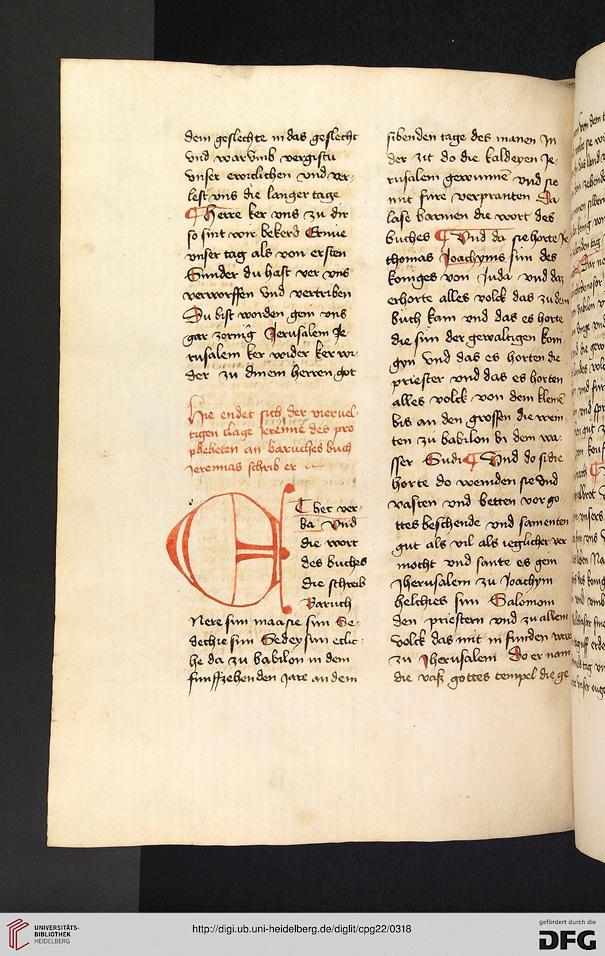 dem geslechte in das geslecht
vnd warvmb vergistu
vnser ewiclichen vnd ver-
lest vns die langer tage
Herre ker vns zu dir
so sint wir bekerd Ernue
vnser tag als von ersten
Sunder du hast ver vns
verworffen vnd vertriben
Du bist worden gein vns
gar zornig Jerusalem Je
rusalem ker wider ker wi-
der zu dinem herren got
Hie endet sich der viervel-
tigen clage Jeremie des pro
pheten an baruches buch
Jeremias schrib er
Et hec ver-
ba Vnd
die wort
des buches
die schreib
Baruch
Nere sun maasie sun Se-
dechie sun Sedey sun
he da zu babilon in dem
funffzehenden Jare an dem
sibenden tage des manen In
der zit do die kaldeyen Je-
rusalem gewunnen vnd sie
mit fure verpranten Da
lase barmen die wort des
buches Vnd da sie horte Je
thomas Joachyms sun des
koniges von Juda vnd daz
erhorte alles volck das zu dem
buch kam vnd das es horte
die sun der geweltigen kon
gyn vnd das es horten die
priester vnd das es horten
alles volck von dem kleinen
bis an den grossen die wein-
ten zu babilon bi dem wa-
sser Sudi Vnd do sie die
horte do weinden sie vnd
vasten vnd betten vor go-
ttes beschende vnd samenten
gut als vil als yeglicher ver
mocht vnd sante es gein
Jherusalem zu Joachym
helchies sun Salomom
den priestern vnd zu allem
volck das mit in funden wart
zu Jherusalem Do er nam
die vas gottes tempel die ge
UNIVERSITÄTS-
BIBLIOTHEK
HEIDELBERG
http://digi.ub.uni-heidelberg.de/diglit/cpg22/0318
gefördert durch die
DFG